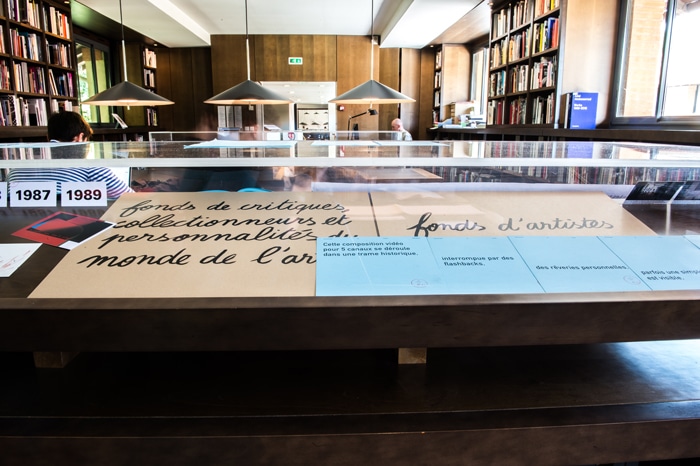 1987 1989
fonds de critiques
collectionneurs et
personnalités du
monde de l'ar
fonds d'artistes
Cette composition vidéo
pour 5 canaux se déroule
dans une trame historique.
interrompue par des
flashbacks.
des rêveries personnelles
parfois une simp
est visible.